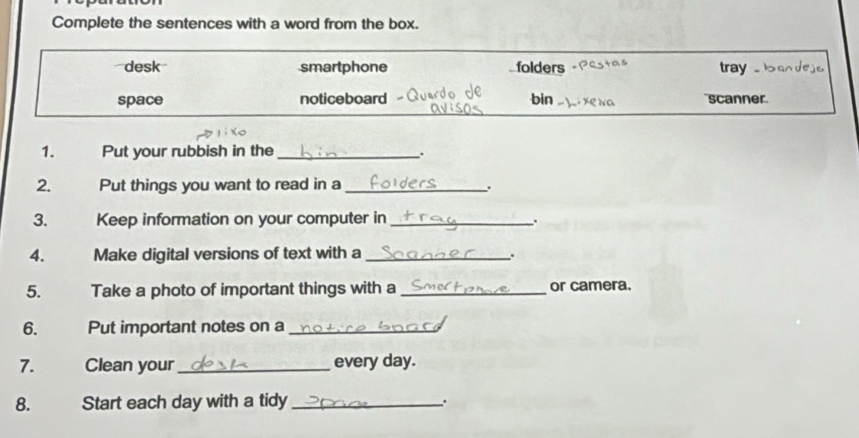 Complete the sentences with a word from the box.
desk smartphone folders - pastas tray - bandeja
space noticeboard - Quardo de avisos bin - lixeira scanner
→ lixo
1. Put your rubbish in the bin.
2. Put things you want to read in a folders.
3. Keep information on your computer in tray.
4. Make digital versions of text with a Scanner.
5. Take a photo of important things with a Smartphone or camera.
6. Put important notes on a notice board
7. Clean your desk every day.
8. Start each day with a tidy space.